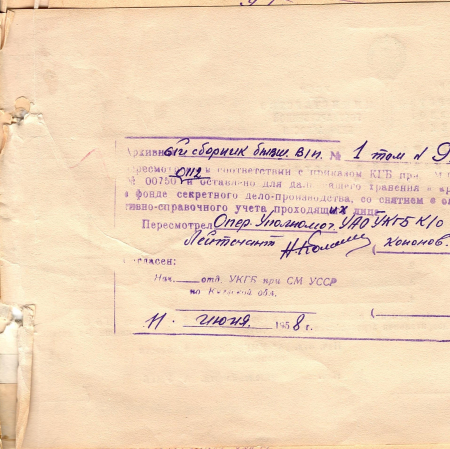 Архивн сборник бывш. В/п. № 1 том № 9
ересмот в соответствии с приказом КГБ при М
№ 0075 и оставлено для даль хранения в ар
фонде секретного дело-производства, со снятием с о
тивно-справочного учета проходящих лиц
Пересмотрел Опер. Уполномоч. УАО УКГБ К/О
Лейтенант (Кононов.
гласен:
Нач. отд. УКГБ при СМ УССР
по обл.
(
11. июня. 1958 г.